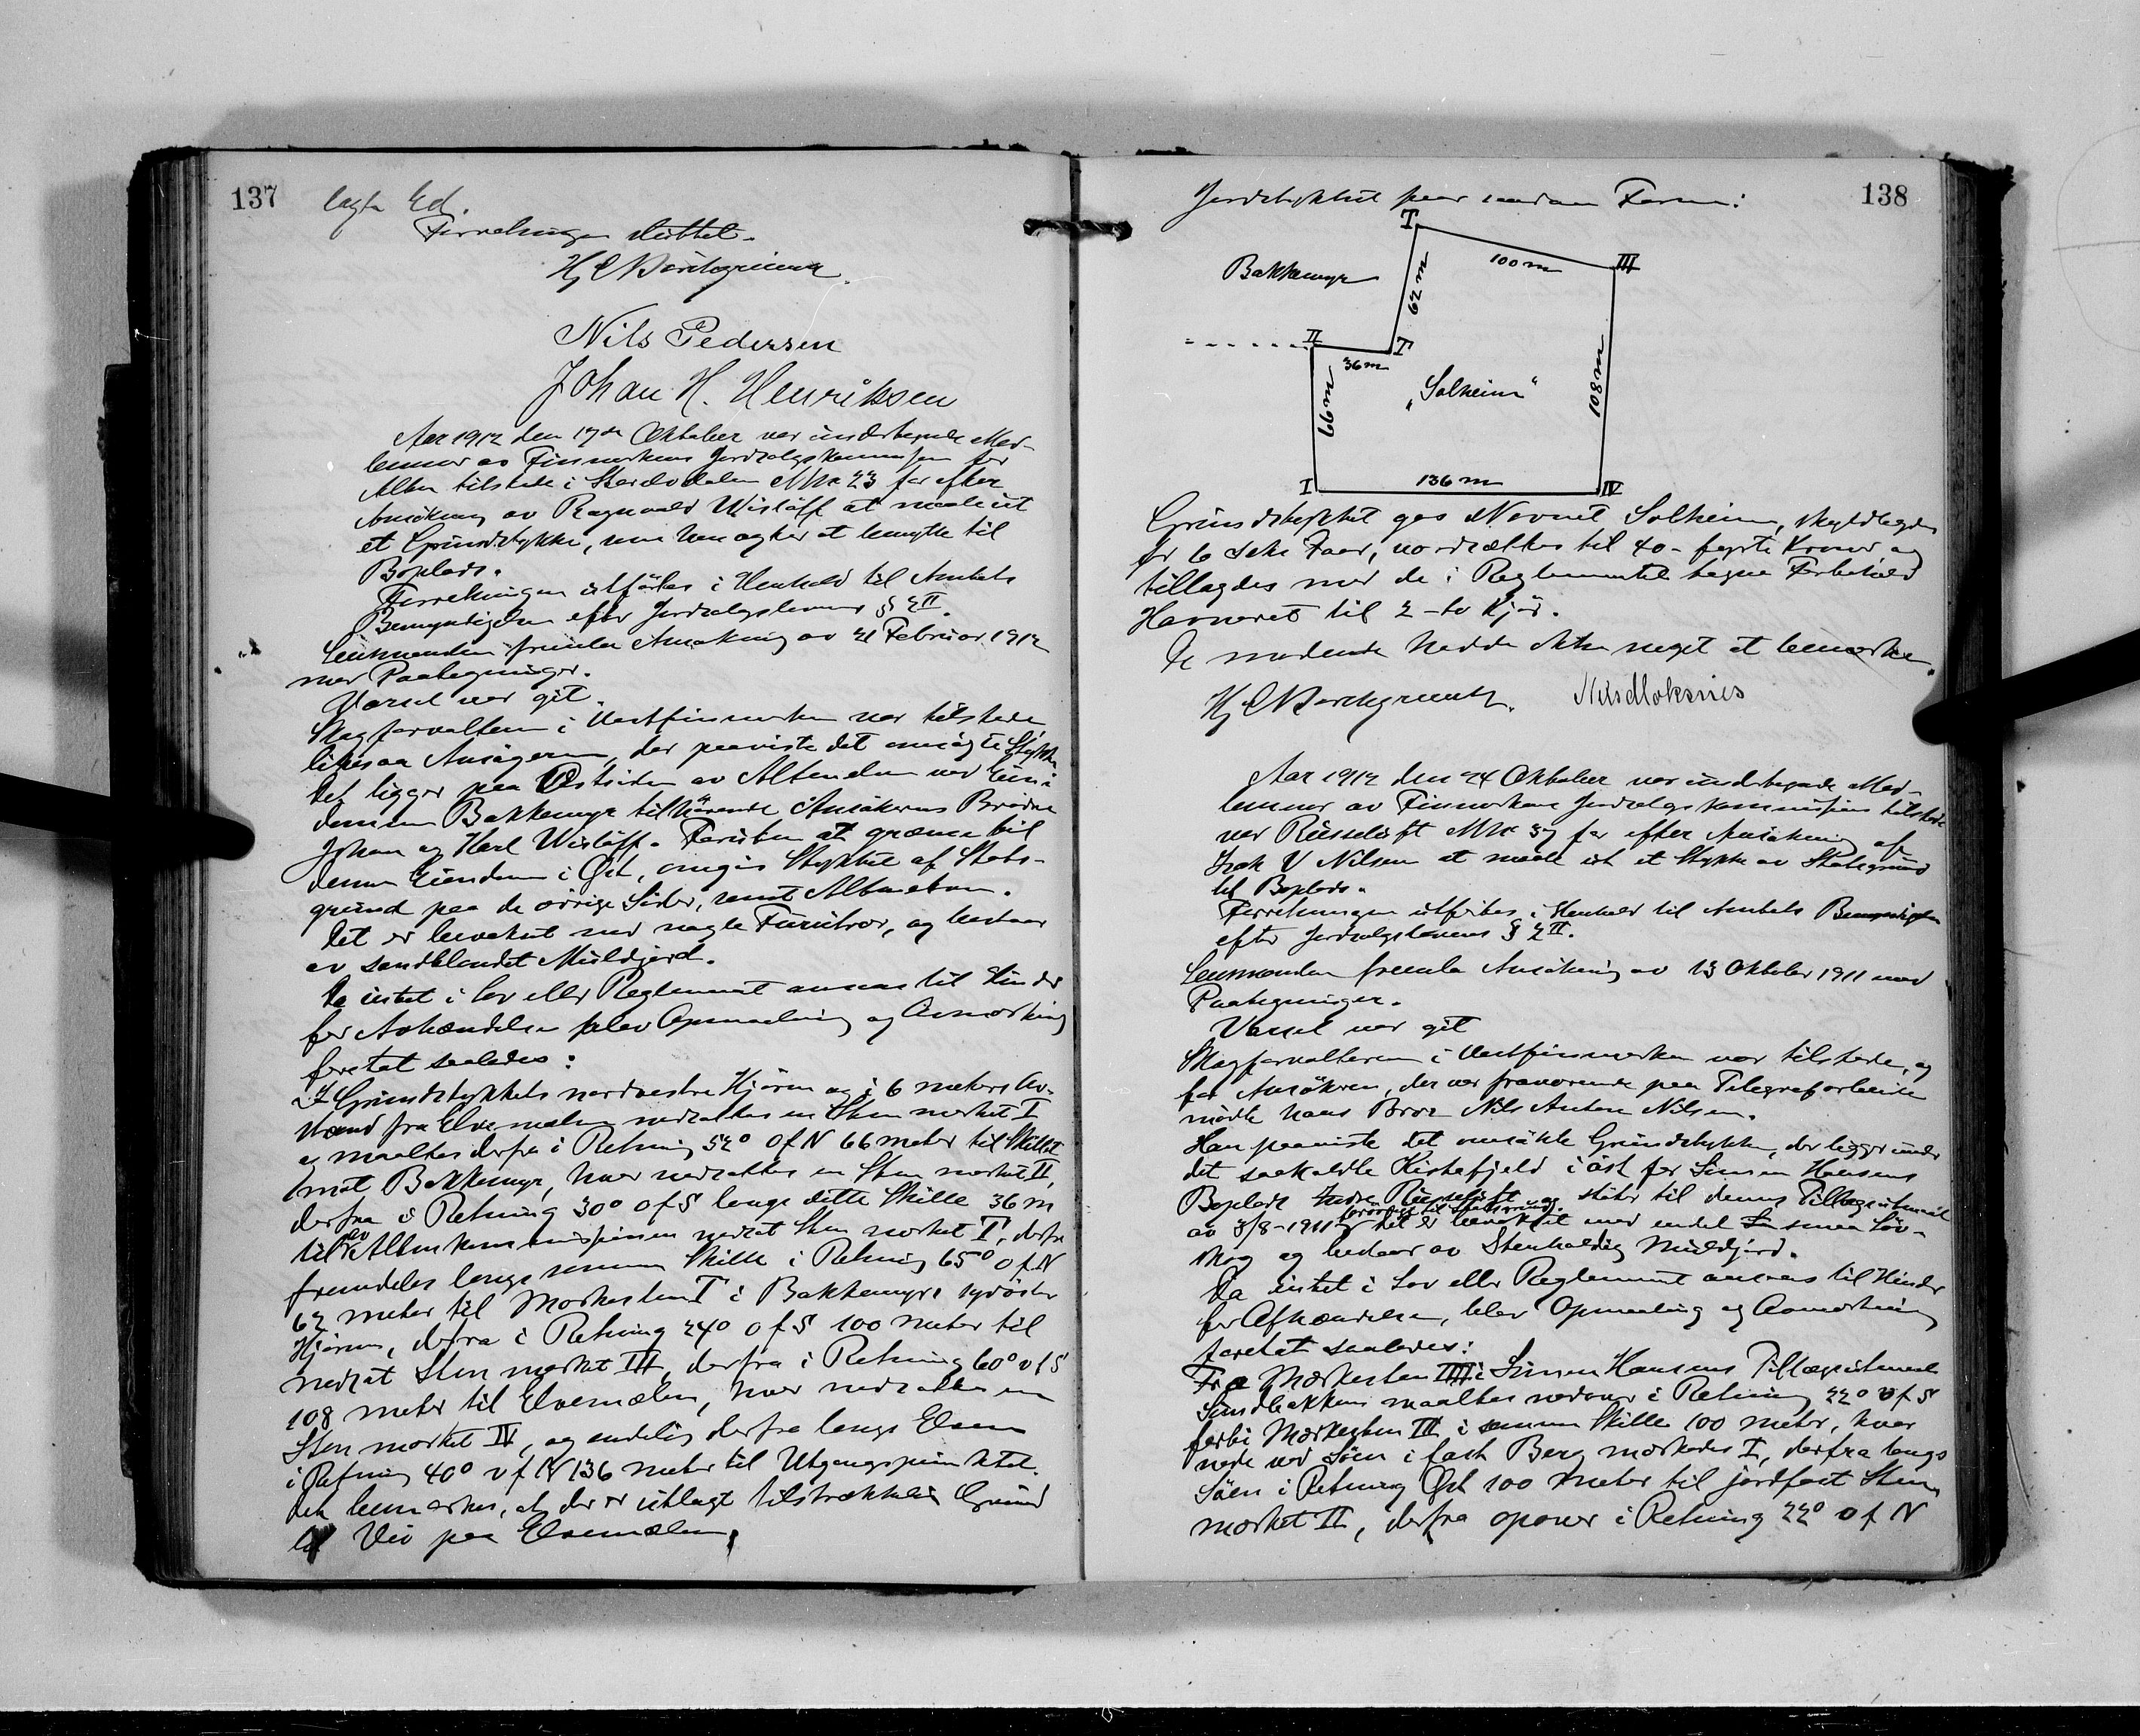 137
lagte Ed.
Forretningen sluttet.
Hj C Borchgrevink
Nils Pedersen
Johan H. Henriksen
Aar 1912 den 17de Oktober var undertegnede Med-
lemmer av Finmarkens Jordsalgskommission for
Alten tilstede i Skaidodalen MNo 23 for efter
Ansökning av Ragnvald Wisløff at maale ut
et Grundstykke, som han agter at benytte til
Boplads.
Forretningen utføres i Henhold til Amtets
Bemyndigelse efter Jordsalgslovens § 2 II.
Lensmanden fremla Ansökning av 21 Februar 1912
med Paategninger.
Varsel var git.
Skogforvalteren i Vestfinmarken var tilstede
likesaa Ansøgeren, der paaviste det ansøgte Stykke
Det ligger paa Østsiden av Altenelven ved Eien-
dommen Bakkemyr tilhørende Ansøkerens Brødre
Johan og Karl Wisløff. Foruten at grænse til
denne Eiendom i Øst, omgis Stykket af Stats-
grund paa de øvrige Sider, samt Altenelven.
Det er bevokset med nogle Furutrær, og bestaar
av sandblandet Muldjord.
Da intet i Lov eller Reglement ansaas til Hinder
for Avhændelse blev Opmaaling og Avmerking
foretat saaledes:
I Grundstykkets nordvestre Hjørne og i 6 meters Av-
stand fra Elvemælen nedsattes en Sten merket I
og maaltes derfra i Retning 52° O f N 66 meter til Skillet
mot Bakkemyr, hvor nedsattes en Sten merket II,
derfra i Retning 30° O f S langs dette Skille 36 m
til av Altenkommissionen nedsat Sten merket I, derfra
fremdeles langs samme Skille i Retning 65° O f N
62 meter til Merkesten I i Bakkemyrs sydöstre
Hjørne, derfra i Retning 24° O f S 100 meter til
nedsat Sten merket III, derfra i Retning 60° v f S
108 meter til Elvemælen, hvor nedsattes en
Sten merket IV, og endelig derfra langs Elven
i Retning 40° v f N 136 meter til Utgangspunktet.
Det bemerkes, at der er utlagt tilstrækkelig Grund
til Vei paa Elvemælen.
138
Jordstykket har saadan Form:
I
100 m
III
Bakkemyr
62 m
II
I
36 m
"Solheim"
66 m
108 m
I
136 m
IV
Grundstykket gas Navnet Solheim, skyldlagdes
for 6 Seks Øre, værdsættes til 40 - fyrti Kroner og
tillagdes med de i Reglementet tagne Forbehold
Havneret til 2 - to Kjør.
De mødende hadde ikke noget at bemerke.
Hj C Borchgrevink. Nils Moksnes
Aar 1912 den 24 Oktober var undertegnede Med-
lemmer av Finmarkens Jordsalgskommission tilstede
ved Russeluft MNo 37 for efter Ansökning af
Isak V Nilsen at maale ut et Stykke av Statsgrund
til Boplads.
Forretningen utføres i Henhold til Amtets Bemyndigelse
efter Jordsalgslovens § 2 II.
Lensmanden fremla Ansökning av 13 Oktober 1911 med
Paategninger.
Varsel var git
Skogforvalteren i Vestfinmarken var tilstede, og
for Ansökeren, der var fraværende paa Telegrafarbeide
mödte hans Bror Nils Anton Nilsen.
Han paaviste det ansökte Grundstykke, der ligger under
det saakaldte Kistefjeld i öst for Simon Hansens
Boplads Indre Russeluft og støter til dennes Tillægsutmaal
av 3/8-1911, forövrig til Statsgrund. Det er bevokset med endel smaa Löv-
skog og bestaar av Stenholdig Muldjord.
Da intet i Lov eller Reglement ansaas til Hinder
for Afhændelse, blev Opmaaling og Avmerkning
foretat saaledes:
Fra Merkesten IIII i Simon Hansens Tillægsutmaal
Sundbakken maaltes nedover i Retning 22° v f S
forbi Merkesten III i samme Skille 100 meter, hvor
nede ved Söen i fast Berg merkedes I, derfra langs
Söen i Retning Øst 100 meter til jordfast Sten
merket II, derfra opover i Retning 22° O f N